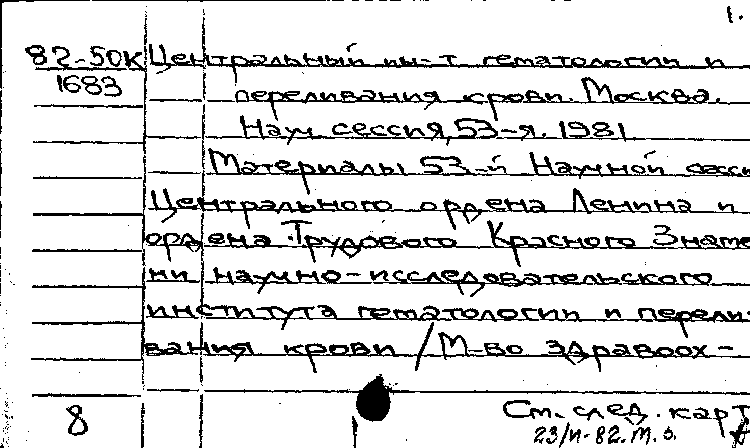 1.
82-50К Центральный ин-т гематологии и
1683 переливания крови. Москва.
Науч. сессия, 53-я. 1981
Материалы 53-й Научной сесси
Центрального ордена Ленина и
ордена Трудового Красного Знаме
ни научно-исследовательского
института гематологии и перели-
вания крови / М-во здравоох-
8 См. след. карт